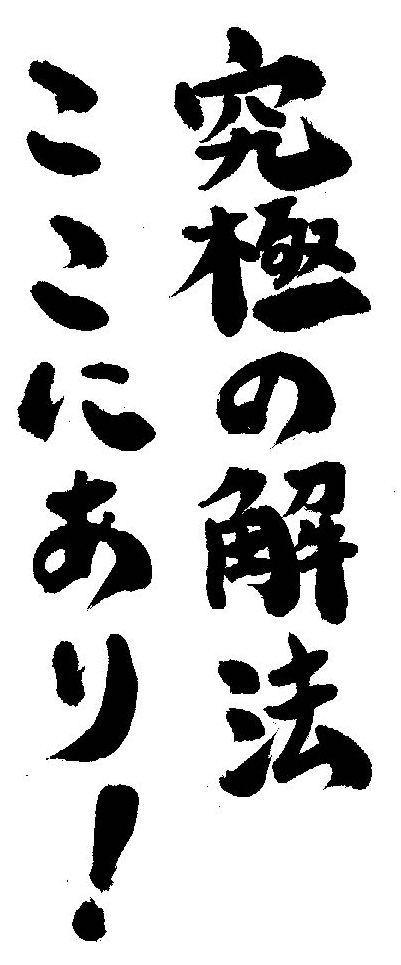 究極の解法
ここにあり！